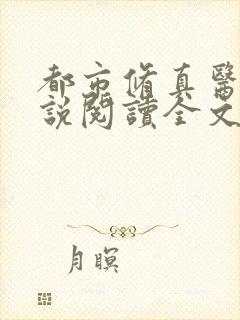 都市修真醫
說閱讀全文
月暝